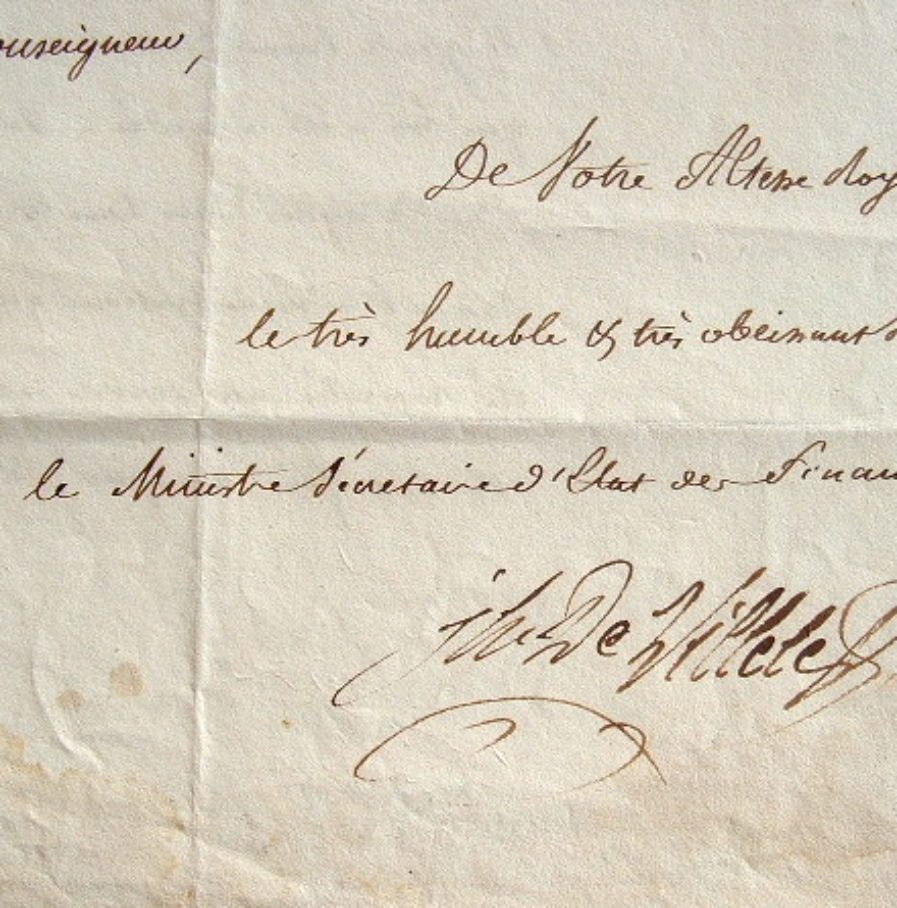 onseigneur,
De Votre Altesse Roy
le très humble & très obeissant
le Ministre Sécretaire d'Etat des Finan
jh De Villele